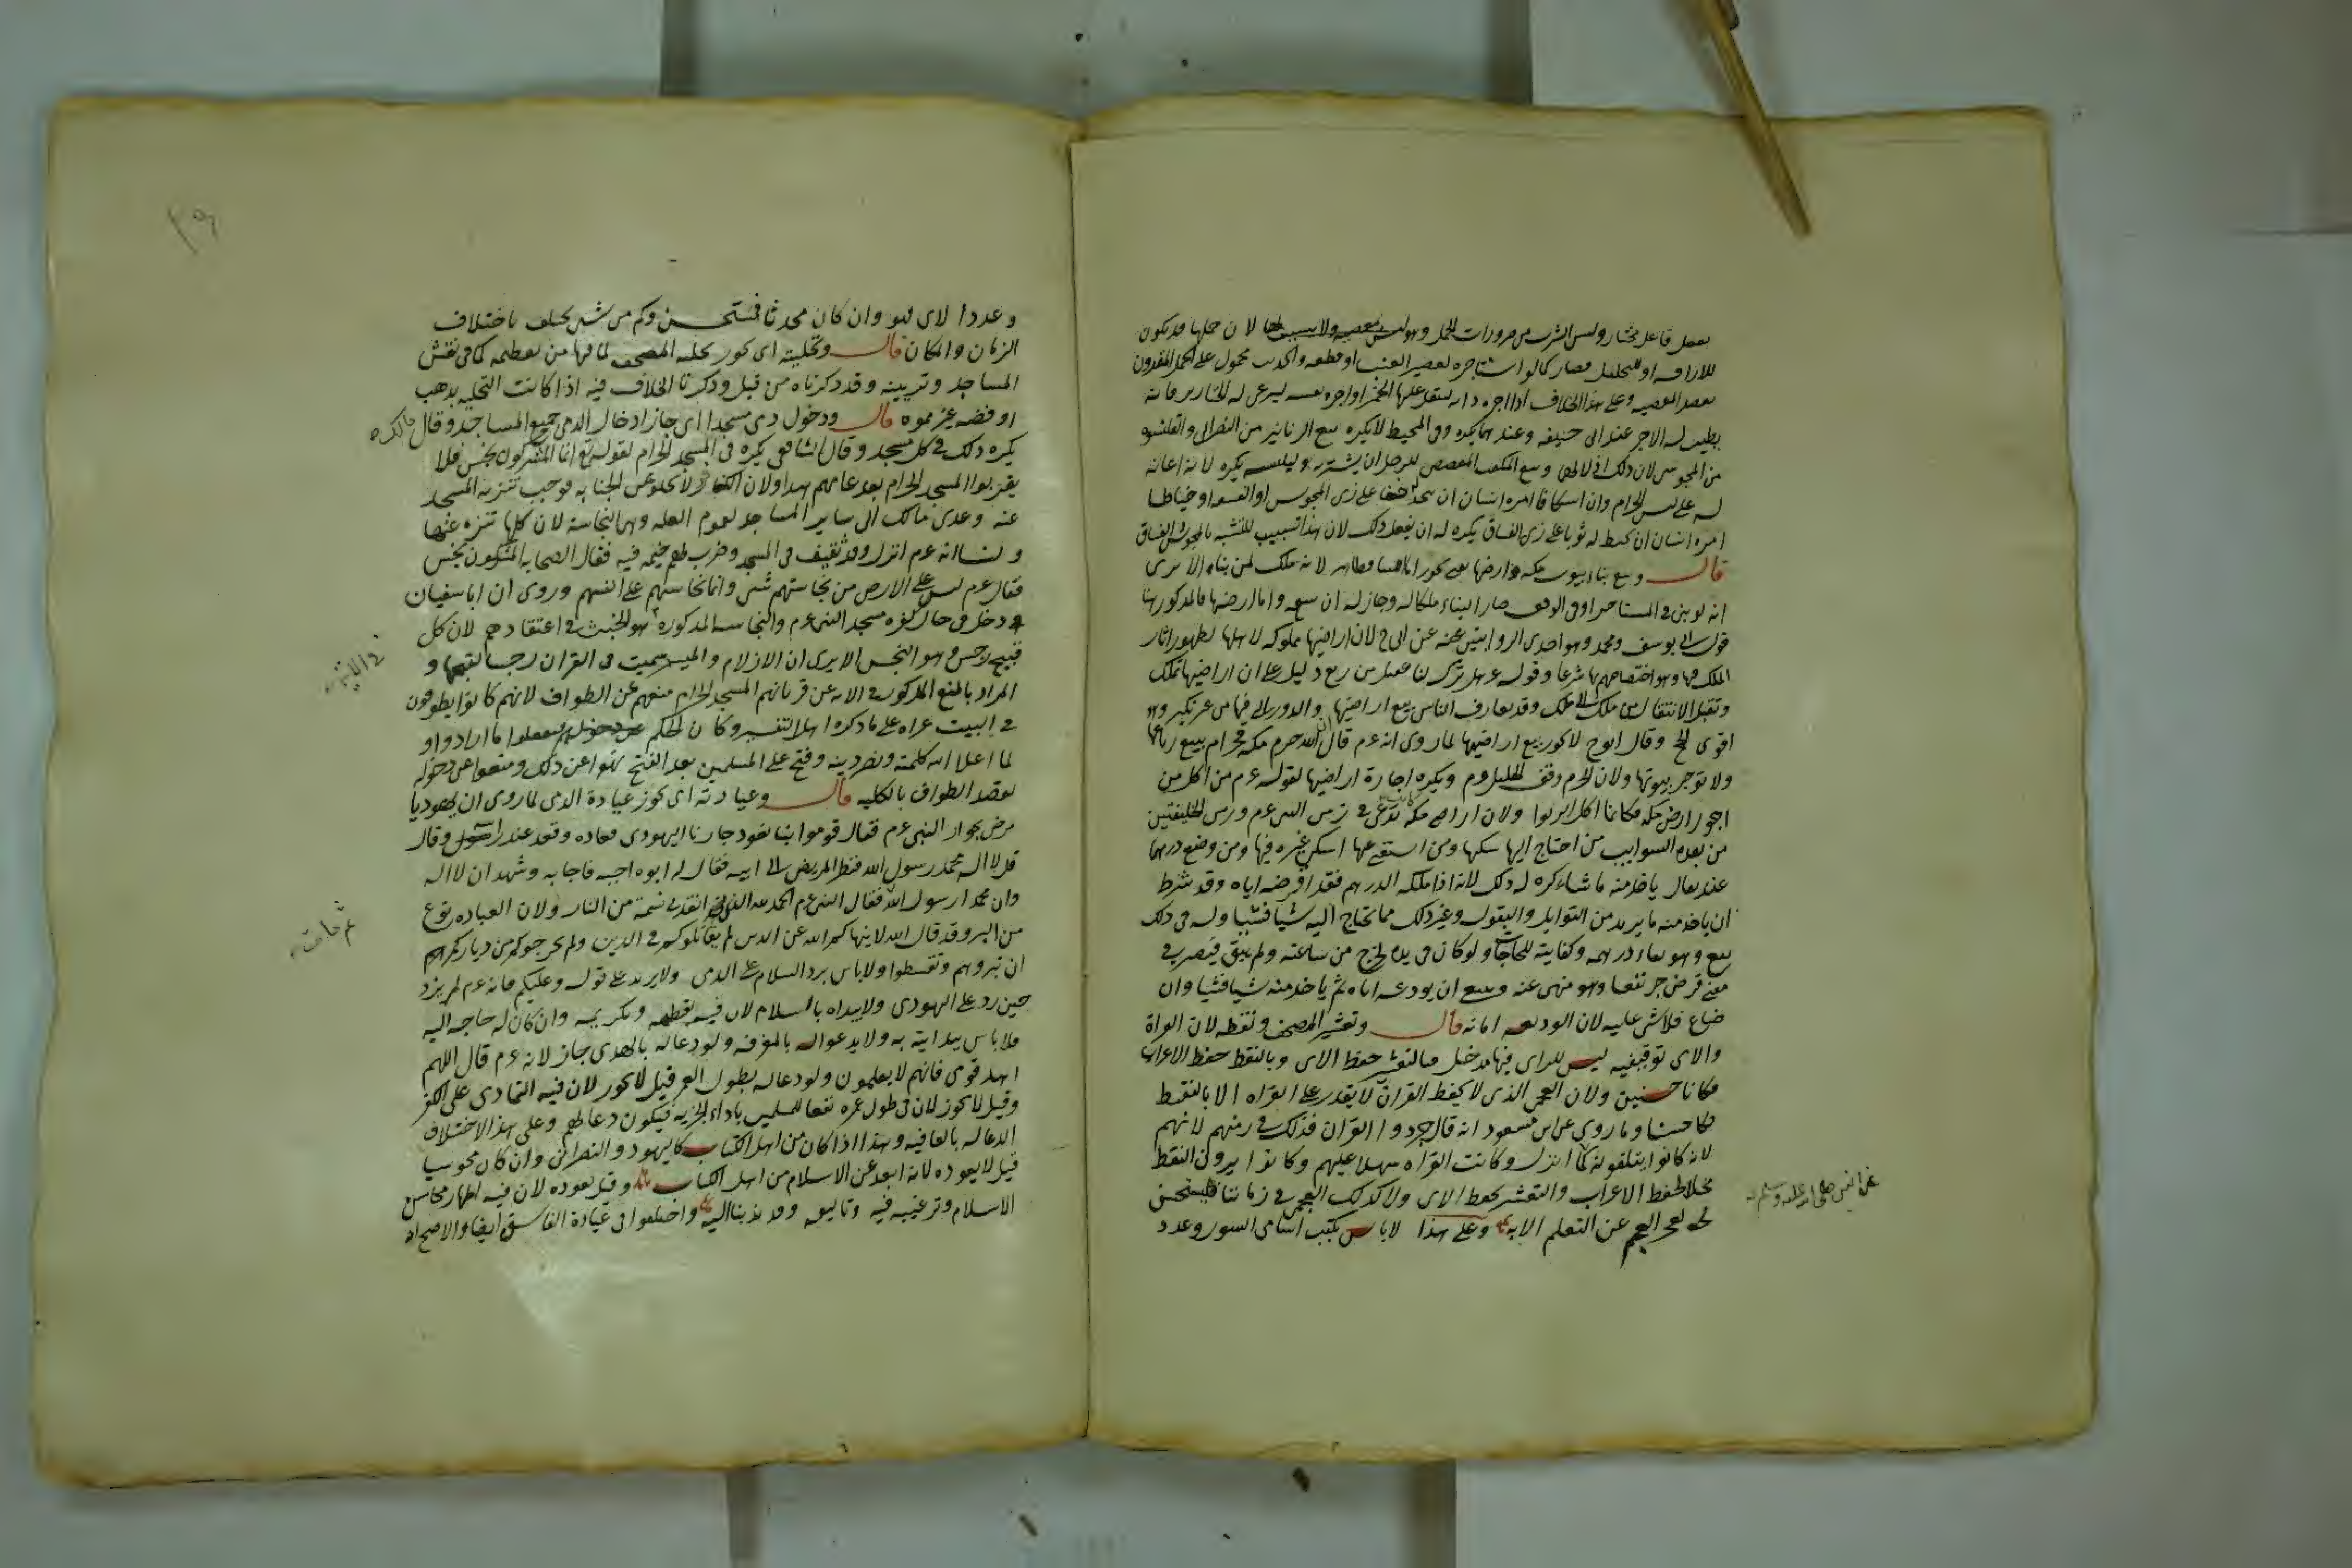 بفعل فاعل مختار وليس الشرب من ضرورات الحمل وهو ليس بمعصية ولا سبب لها لان حملها قد يكون
للاراقه او للتخليل فصار كما لو استاجره لعصير العنب او قطعه والحديث محمول على الحمل المقرون
بقصد المعصيه وعلى هذا الخلاف اذا اجره دابه لينقل عليها الخمر او اجره نفسه ليرعى له الخنازير فانه
يطيب له الاجر عند ابى حنيفه وعندهما يكره وفى المحيط لا يكره بيع الزنانير من النصرانى والقلنسوه
من المجوسى لان ذلك اذلال لهما وبيع المكعب المفضض للرجل ان يشتريه ليلبسه يكره لانه اعانه
له على لبس الحرام وان اسكافا امره انسان ان يتخذ له خفا على زى المجوس او الفسقه او خياطا
امره انسان ان يخيط له ثوبا على زى الفساق يكره له ان يفعل ذلك لان هذا تسبيب للتشبه بالمجوس والفساق
قال وبيع بناء بيوت مكه وارضها يعنى يجوز اما البناء فظاهر لانه ملك لمن بناه الا ترى
انه لو بنى فى المستاجر او فى الوقف صار البناء ملكا له وجاز له ان يبيعه واما ارضها فالمذكور هنا
قول ابى يوسف ومحمد وهو احدى الروايتين عن ابى ح لان اراضيها مملوكه لاهلها لظهور اثار
الملك فيها وهو اختصاصهم بها شرعا وقوله عم هل ترك لنا عقيل من ربع دليل على ان اراضيها تملك
وتقبل الانتقال من ملك الى ملك وقد تعارف الناس بيع اراضيها والدور التى فيها من غير نكير وهو
اقوى الحج وقال ابو ح لا يجوز بيع اراضيها لما روى انه عم قال ان الله حرم مكه فحرام بيع رباعها
ولا تؤجر بيوتها ولان الحرم وقف الخليل عم ويكره اجارة اراضيها لقوله عم من اكل من
اجور ارض مكه فكانما اكل الربوا ولان اراضى مكه تدعى فى زمن النبى عم وزمن الخليفتين
من بعده السوايب من احتاج اليها سكنها ومن استغنى عنها اسكن غيره فيها ومن وضع درهما
عند بقال ياخذ منه ما شاء كره له ذلك لانه اذا ملكه الدرهم فقد اقرضه اياه وقد شرط
ان ياخذ منه ما يريد من التوابل والبقول وغير ذلك مما يحتاج اليه شيا فشيا وله فى ذلك
نفع وهو بقاء درهمه وكفايته للحاجات ولو كان فى يده لخرج من ساعته ولم يبق فيصير فى
معنى قرض جر نفعا وهو منهى عنه وينبغى ان يودعه اياه ثم ياخذ منه شيا فشيا وان
ضاع فلا شى عليه لان الوديعه امانه قال وتعشير المصحف ونقطه لان القراة
والاى توقيفيه ليس للراى فيها مدخل فبالتعشير حفظ الاى وبالنقط حفظ الاعراب
فكانا حسنين ولان العجمى الذى لا يحفظ القران لا يقدر على القراه الا بالنقط
فكان حسنا وما روى عن ابن مسعود انه قال جردوا القران فذلك فى زمنهم لانهم
لانه كانوا يتلقونه كما انزل وكانت القراه سهلا عليهم وكانوا يرون النقط
مخلا لحفظ الاعراب والتعشير بحفظ الاى ولا كذلك العجمى فى زماننا فيستحسن
لعجز العجم عن التعلم الا به وعلى هذا لا باس بكتب اسامى السور وعدد
عن النبى صلى الله عليه وسلم
وعدد الاى فهو وان كان محدثا فمستحسن وكم من شى يختلف باختلاف
الزمان والمكان قال وتحليته اى يجوز تحليه المصحف لما فيها من تعظيمه كما فى نقش
المساجد وتزيينه وقد ذكرناه من قبل وذكرنا الخلاف فيه اذا كانت التحليه بذهب
او فضه غير مموه قال ودخول ذمى مسجدا اى جاز ادخال الذمى جميع المساجد وقال مالك ره
يكره ذلك فى كل مسجد وقال الشافعى يكره فى المسجد الحرام لقوله تع انما المشركون نجس فلا
يقربوا المسجد الحرام بعد عامهم هذا ولان الكافر لا يخلو عن الجنابه فوجب تنزيه المسجد
عنه وعدى مالك الى ساير المساجد لعموم العله وهى النجاسة لان كلها تنزه عنها
ولنا انه عم انزل وفد ثقيف فى المسجد وضرب لهم خيمه فيه فقال الصحابه المشركون نجس
فقال عم ليس على الارض من نجاستهم شى وانما نجاستهم على انفسهم وروى ان ابا سفيان
دخل فى حال كفره مسجد النبى عم والنجاسه المذكوره هو الخبث فى اعتقادهم لان كل
قبيح رجس وهو النجس الا يرى ان الازلام والميسر سميت فى القران رجسا لقبحها و
المراد بالمنع المذكور فى الايه عن قربانهم المسجد الحرام منعهم عن الطواف لانهم كانوا يطوفون
فى البيت عراه على ما ذكره اهل التفسير وكان الحكم عن دخولهم ليفعلوا ما ارادوا و
لما اعلا الله كلمته ونصر دينه وفتح على المسلمين بعد الفتح نهوا عن ذلك ومنعوا عن دخوله
لقصد الطواف بالكليه قال وعيادته اى يجوز عيادة الذمى لما روى ان يهوديا
مرض بجوار النبى عم فقال قوموا بنا نعود جارنا اليهودى فعاده وقعد عند راسه وقال
قل لا اله محمد رسول الله فنظر المريض الى ابيه فقال له ابوه اجبه فاجابه وشهد ان لا اله
وان محمدا رسول الله فقال النبى عم الحمد لله الذى انقذ بى نسمة من النار ولان العياده نوع
من البر وقد قال الله لا ينهاكم الله عن الذين لم يقاتلوكم فى الدين ولم يخرجوكم من دياركم
ان تبروهم وتقسطوا ولا باس برد السلام على الذمى ولا يزيد على قوله وعليكم فانه عم لم يزد
حين رد على اليهودى ولا يبداه بالسلام لان فيه تعظيمه وتكريمه وان كان له حاجه اليه
فلا باس ببدايته به ولا يدعو له بالمغفره ولو دعا له بالهدى جاز لانه عم قال اللهم
اهد قومى فانهم لا يعلمون ولو دعا له بطول العمر قيل لا يجوز لان فيه التمادى على الكفر
وقيل لا يجوز لان فى طول عمره نفعا للمسلمين باداء الجزيه فيكون دعا لهم وعلى هذا الاختلاف
الدعا له بالعافيه وهذا اذا كان من اهل الكتاب كاليهود والنصرانى وان كان مجوسيا
قيل لا يعوده لانه ابعد عن الاسلام من اهل الكتاب وقيل يعوده لان فيه اظهار محاسن
الاسلام وترغيبه فيه وتاليفه وقد ندبنا اليه واختلفوا فى عيادة الفاسق ايضا والاصح انه